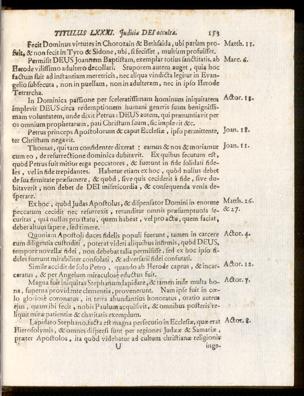 TITULUS LXXXI. Judicia DEI occulta. 153
Fecit Dominus virtutes in Chorozain & Bethsaida, ubi parum pro- Matth. 11.
fuit, & non fecit in Tyro & Sidone, ubi, si fecisset, multum profuisset.
Permisit DEUS Joannem Baptistam, exemplar totius sanctitatis, ab Marc. 6.
Herode vilissimo adultero decollari. Stuporem auget, quia hoc
factum fuit ad instantiam meretricis, nec aliqua vindicta legitur in Evan-
gelio subsecuta, non in puellam, non in adulteram, nec in ipso Herode
Tetrarcha.
In Dominica passione per sceleratissimorum hominum iniquitatem Actor. 18.
implevit DEUS circa redemptionem humani generis suam benignissi-
mam voluntatem, unde dixit Petrus: DEUS autem, qui prænuntiavit per
os omnium prophetarum, pati Christum suum, sic implevit &c.
Petrus princeps Apostolorum & caput Ecclesiæ, ipso permittente, Joan. 18.
ter Christum negavit.
Thomas, qui tam confidenter dixerat: eamus & nos & moriamur Joan. 11.
cum eo, de resurrectione dominica dubitavit. Ex quibus secutum est,
quòd Petrus fuit mitior erga peccatores, & fuerunt in fide solidati fide-
les, vel in fide trepidantes. Habetur etiam ex hoc, quòd nullus debet
de sua firmitate præsumere, & quòd, sive quis cecidit à fide, sive du-
bitaverit, non debet de DEI misericordia, & consequenda venia de-
sperare.
Ex hoc, quòd Judas Apostolus, & dispensator Domini in enorme Matth. 26.
peccatum cecidit nec resurrexit, retunditur omnis præsumptuosa se- & 27.
curitas, quia nullus pro statu, quem habet, vel profectu, quem faciat,
debet altum sapere, sed timere.
Quoniam Apostoli duces fidelis populi fuerunt, tamen in carcere Actor. 4.
cum diligentia custoditi, poterat videri aliquibus infirmis, quòd DEUS,
tempore novellæ fidei, non debebat talia permisisse, sed ex hoc ipso fi-
deles fuerunt mirabiliter consolati, & adversarii fidei confutati.
Simile accidit de solo Petro, quando ab Herode captus, & incar- Actor. 12.
ceratus, & per Angelum miraculosè eductus fuit.
Magna fuit iniquitas Stephanum lapidare, & tamen inde multa bo- Actor. 7.
na, superna providente clementia, provenerunt. Nam ipse fuit in cœ-
lo gloriosè coronatus, in terra abundantius honoratus, oratio autem
ejus, quam ibi fecit, nobis Paulum acquisivit, & omnibus posteris re-
liquit miræ patientiæ & charitatis exemplum.
Lapidato Stephano, facta est magna persecutio in Ecclesia, quæ erat Actor. 8.
Hierosolymis, & omnes dispersi sunt per regiones Judææ & Samariæ,
præter Apostolos, ita quòd videbatur ad cultum christianæ religionis
U inge-